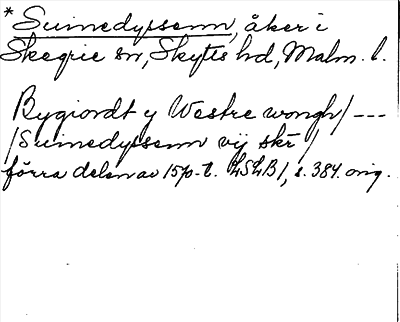 * Suinedyssenn, åker i
Skegrie sn, Skytts hd, Malm. l.
Bygiordt y Westre wongh/ ---
/Suinedyssenn vij skr /
förra delen av 1570-t. LSLB1, s. 384. orig.